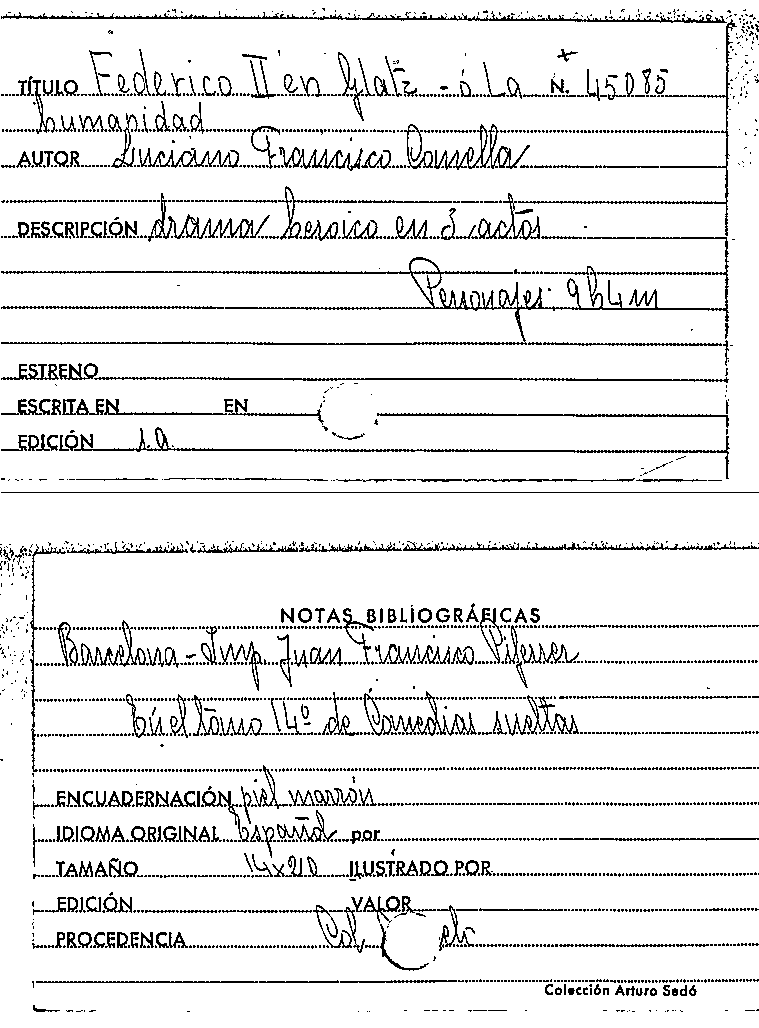 TÍTULO Federico II en Glatz - ó La N. 45085
humanidad
AUTOR Luciano Francisco Comella
DESCRIPCIÓN drama heroico en 3 actos
Personajes: 9h4m
ESTRENO
ESCRITA EN EN
EDICIÓN s.a.
NOTAS BIBLIOGRÁFICAS
Barcelona - Imp. Juan Francisco Piferrer
En el tomo 14º de Comedias sueltas
ENCUADERNACIÓN piel marrón
IDIOMA ORIGINAL Español por
TAMAÑO ILUSTRADO POR
EDICIÓN VALOR
PROCEDENCIA Col
Colección Arturo Sedó